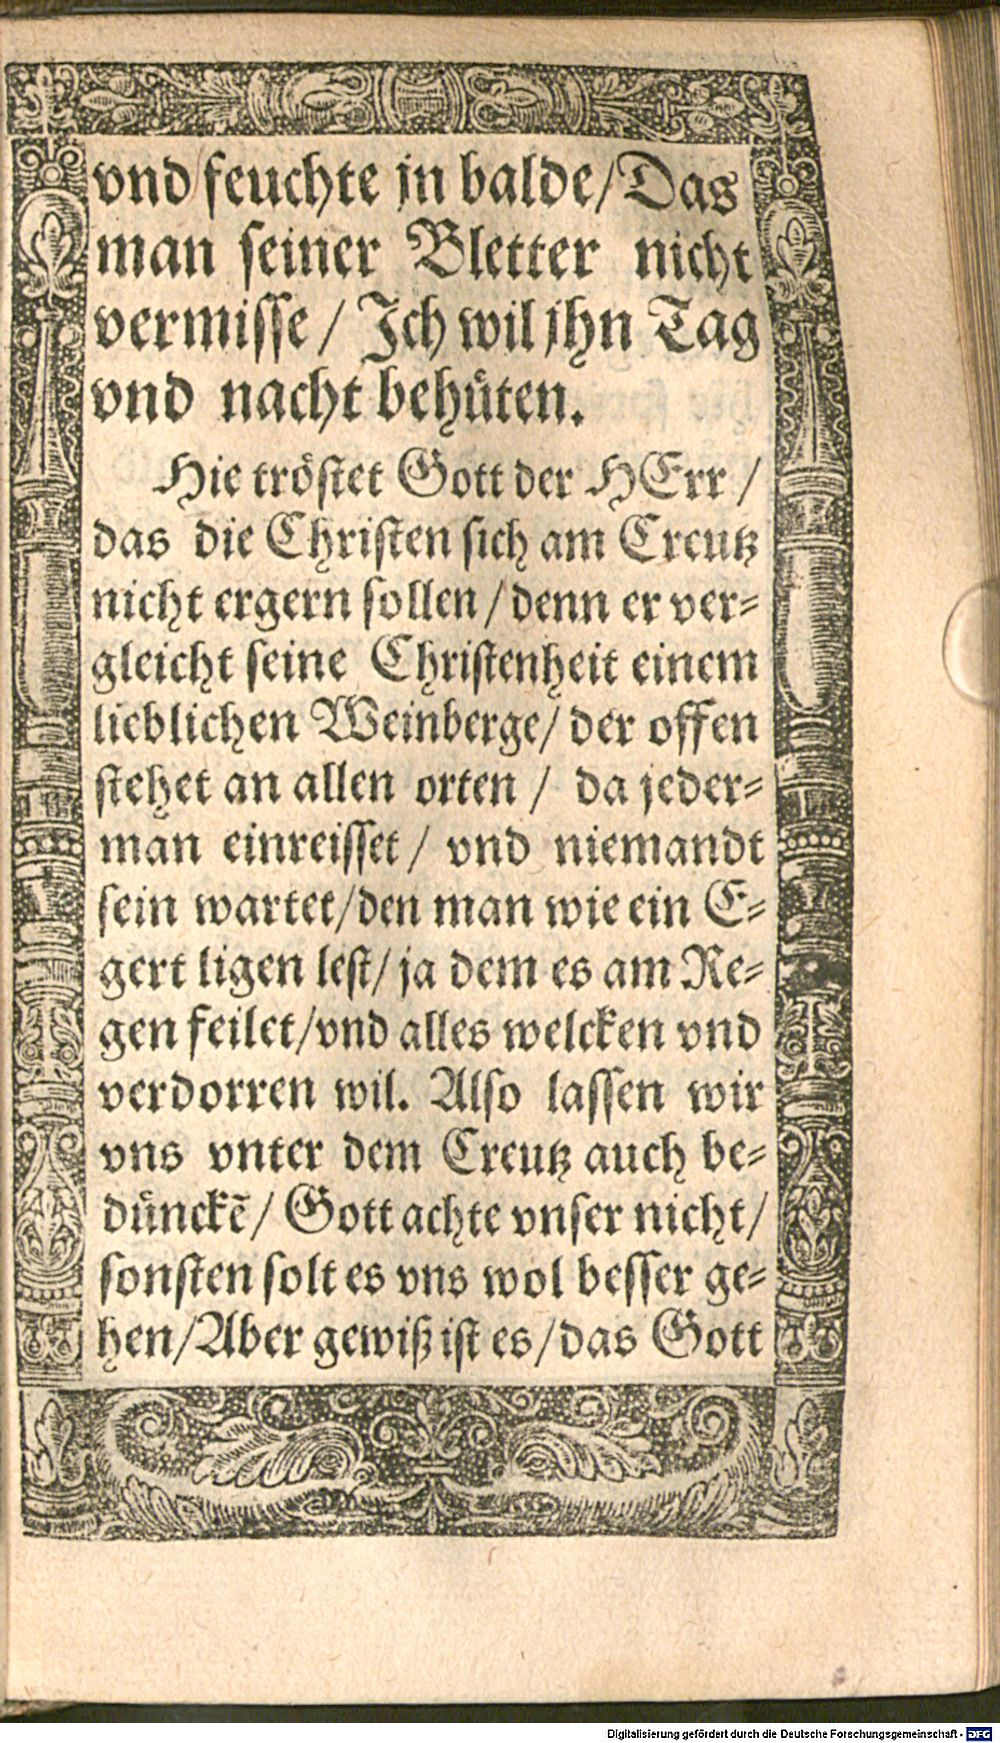 vnd feuchte jn balde/Das
man seiner Bletter nicht
vermisse/ Ich wil jhn Tag
vnd nacht behüten.
Hie tröstet Gott der HErr/
das die Christen sich am Creutz
nicht ergern sollen/denn er ver-
gleicht seine Christenheit einem
lieblichen Weinberge/ der offen
stehet an allen orten/ da jeder-
man einreisset/ vnd niemandt
sein wartet/den man wie ein E-
gert ligen lest/ja dem es am Re-
gen feilet/vnd alles welcken vnd
verdorren wil. Also lassen wir
vns vnter dem Creutz auch be-
dünckē/ Gott achte vnser nicht/
sonsten solt es vns wol besser ge-
hen/Aber gewiß ist es/das Gott
Digitalisierung gefördert durch die Deutsche Forschungsgemeinschaft - DFG